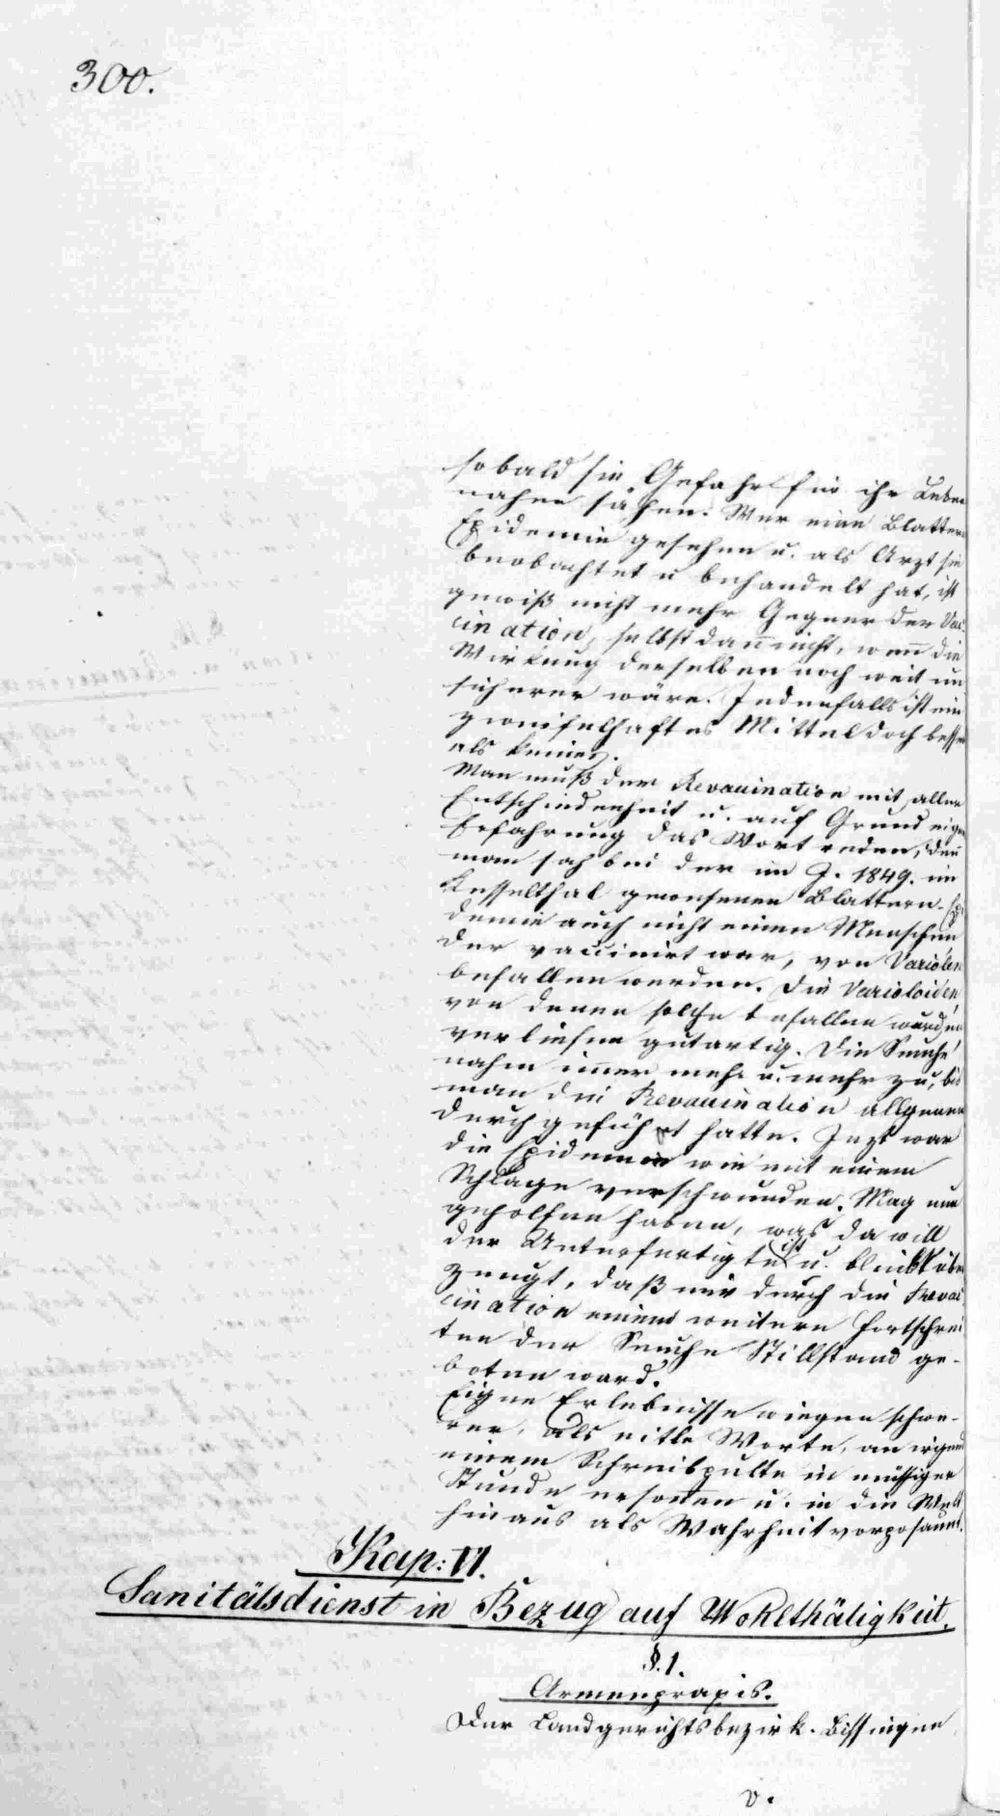 300.
sobald sie Gefahr für ihr Leben
nahen sähen. Wer eine Blattern
Epidemie gesehen u. als Arzt sie
beobachtet u behandelt hat, ist
gewiß nicht mehr Gegner der Vac-
cination, selbst dann nicht, wenn die
Wirkung derselben noch weit un
sicherer wäre. Jedenfalls ist ein
zweifelhaftes Mittel doch besser
als keines.
Man muß der Revaccination mit aller
Entschiedenheit u. auf Grund eigen
Erfahrung das Wort reden, denn
man sah bei der im J. 1849. im
Kesselthal gewesenen Blattern-Epi
demie auch nicht einen Menschen
der vaccinirt war, von Variolen
befallen werden. Die Varioloiden,
von denen solche befallen wurden
verliefen gutartig. Die Seuche
nahm immer mehr u. mehr zu, bis
man die Revaccination allgemein
durchgeführt hatte. Jezt war
die Epidemie wie mit einem
Schlage verschwunden. Mag nun
geholfen haben, was da will
der Unterfertigte ist u. bleibt über
zeugt, daß nur durch die Revac
cination einem weitern Fortschrei
ten der Seuche Stillstand ge-
boten ward.
Eigne Erlebnisse wiegen schwe-
rer, als eitle Worte, an irgend
einem Schreibpulte in müssiger
Stunde ersonnen u. in die Welt
hinaus als Wahrheit vorposaunt.
Kap: VI.
Sanitätsdienst in Bezug auf Wohlthätigkeit.
§. 1.
Armenpraxis.
Der Landgerichtsbezirk Bissingen
v.